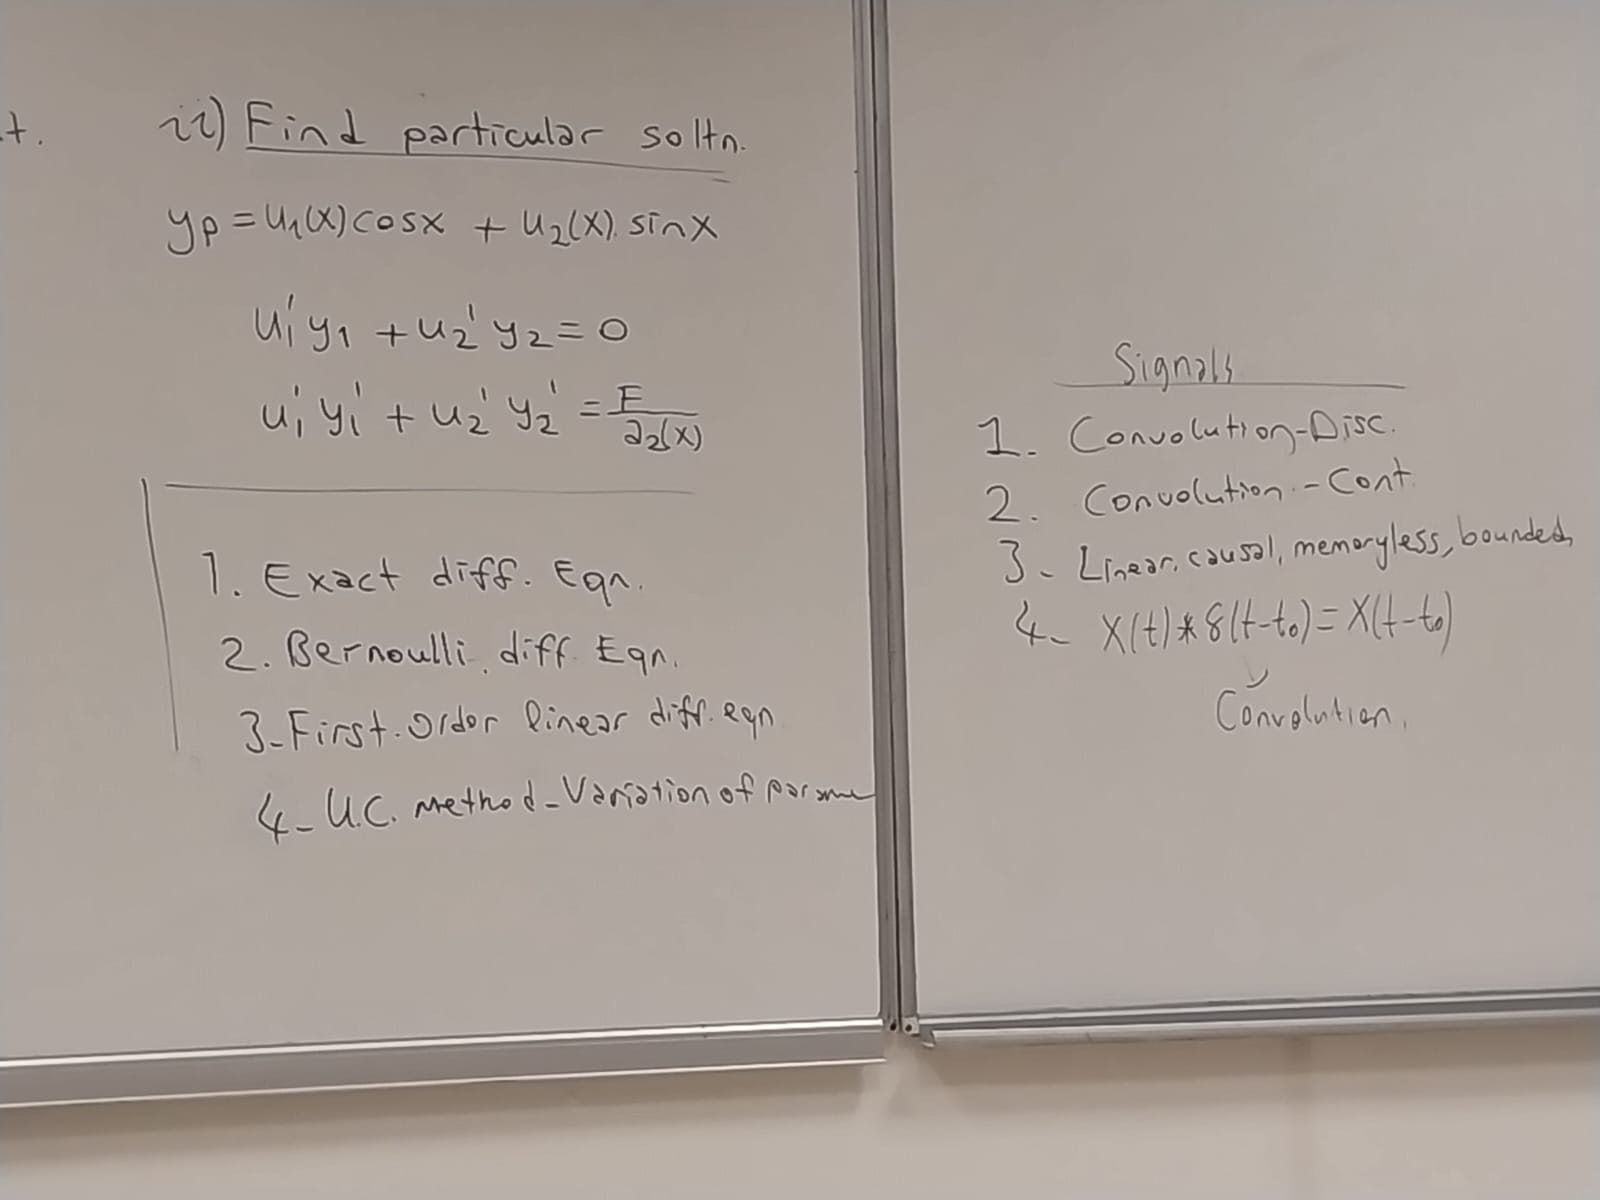 t.
ii) Find particular soltn.
yp = u₁(x) cosx + u₂(x). sinx
u₁' y₁ + u₂' y₂ = 0
u₁' y₁' + u₂' y₂' = F / a₂(x)
1. Exact diff. Eqn.
2. Bernoulli. diff. Eqn.
3- First. Order linear diff. eqn
4- U.C. method - Variation of parame
Signals
1. Convolution-Disc.
2. Convolution - Cont.
3- Linear, causal, memoryless, bounded,
4- X(t) * δ(t-t₀) = X(t-t₀)
Convolution.